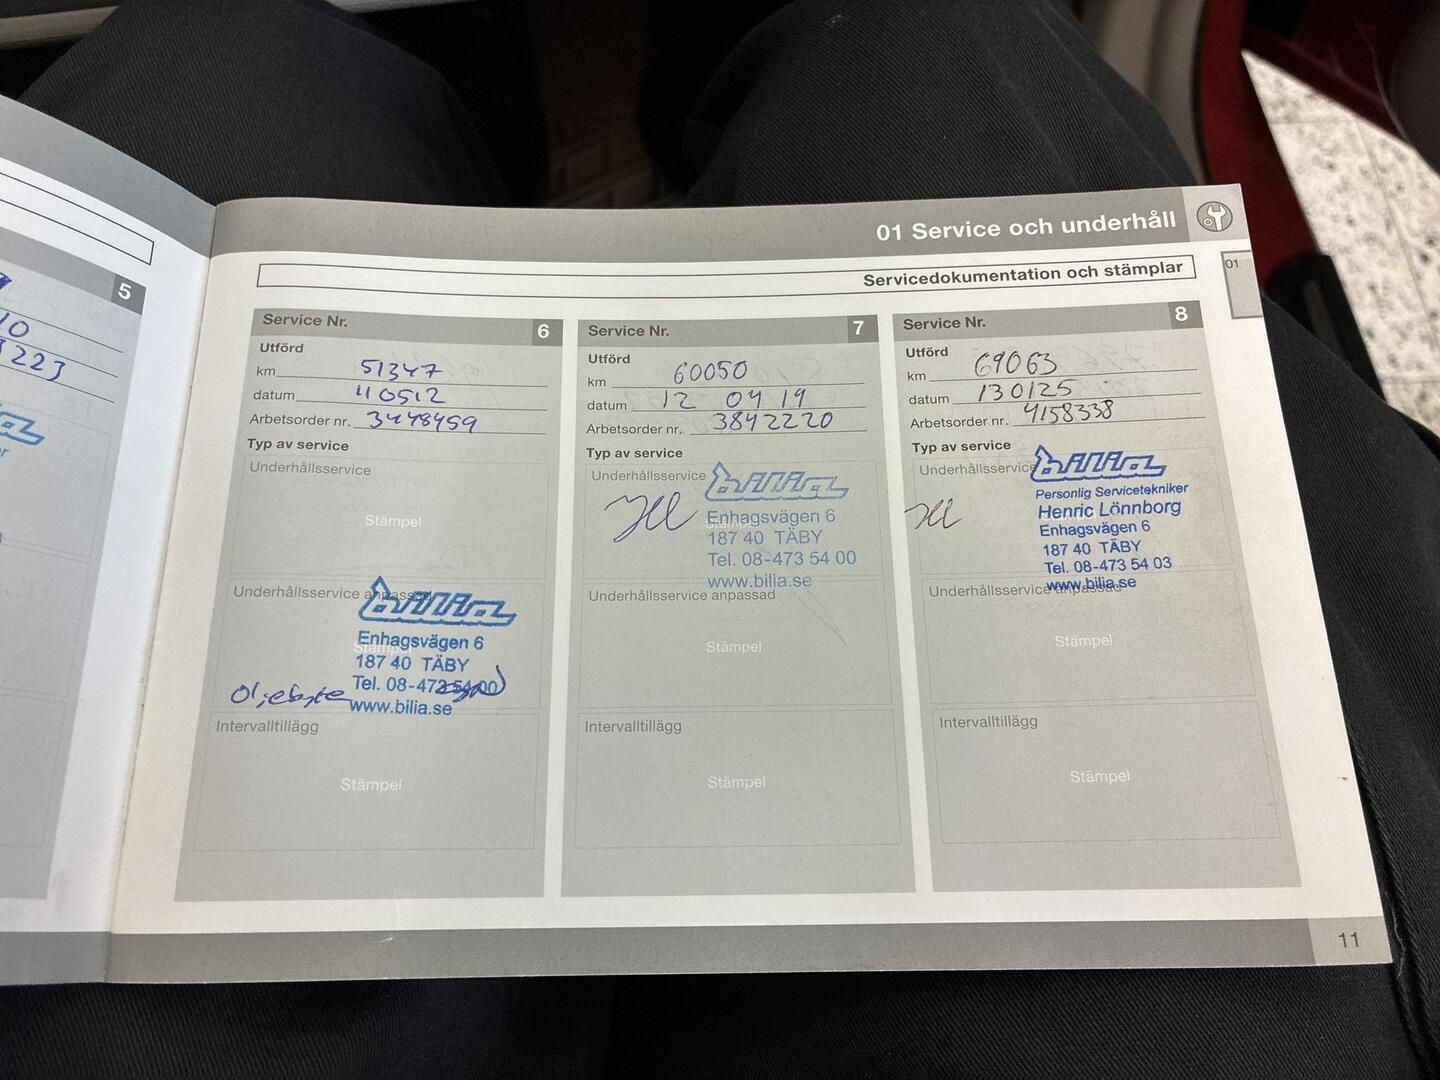 01 Service och underhåll
Servicedokumentation och stämplar
01
5
10
223
Service Nr. 6
Utförd
km 51347
datum 110512
Arbetsorder nr. 3448459
Typ av service
Underhållsservice
Stämpel
Underhållsservice anpassad
bilia
Enhagsvägen 6
Stämpel
187 40 TÄBY
Tel. 08-473 54 00
Oljebyte
www.bilia.se
Intervalltillägg
Stämpel
Service Nr. 7
Utförd
km 60050
datum 12 04 19
Arbetsorder nr. 3842220
Typ av service
Underhållsservice
bilia
Enhagsvägen 6
187 40 TÄBY
Tel. 08-473 54 00
www.bilia.se
Underhållsservice anpassad
Stämpel
Intervalltillägg
Stämpel
Service Nr. 8
Utförd
km 69063
datum 130125
Arbetsorder nr. 4158338
Typ av service
Underhållsservice
bilia
Personlig Servicetekniker
Henric Lönnborg
Enhagsvägen 6
187 40 TÄBY
Tel. 08-473 54 03
www.bilia.se
Underhållsservice anpassad
Stämpel
Intervalltillägg
Stämpel
11